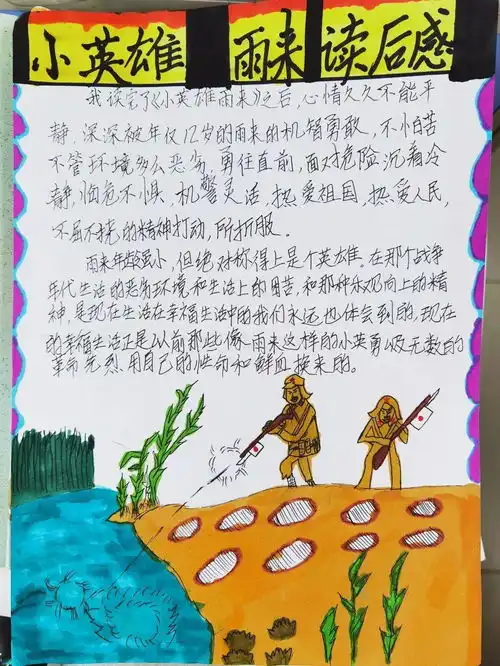 小英雄雨来读后感
我读完了《小英雄雨来》之后，心情久久不能平
静，深深被年仅12岁的雨来的机智勇敢，不怕苦
不管环境多么恶劣，勇往直前，面对危险沉着冷
静，临危不惧，机警灵活，热爱祖国，热爱人民，
不屈不挠的精神打动，所折服。
雨来年龄虽小，但绝对称得上是个英雄。在那个战争
年代生活的恶劣环境和生活上的困苦，和那种乐观向上的精
神，是现在生活在幸福生活中的我们永远也体会到的，现在
的幸福生活正是以前那些像雨来这样的小英勇以及无数的
革命先烈用自己的性命和鲜血换来的。